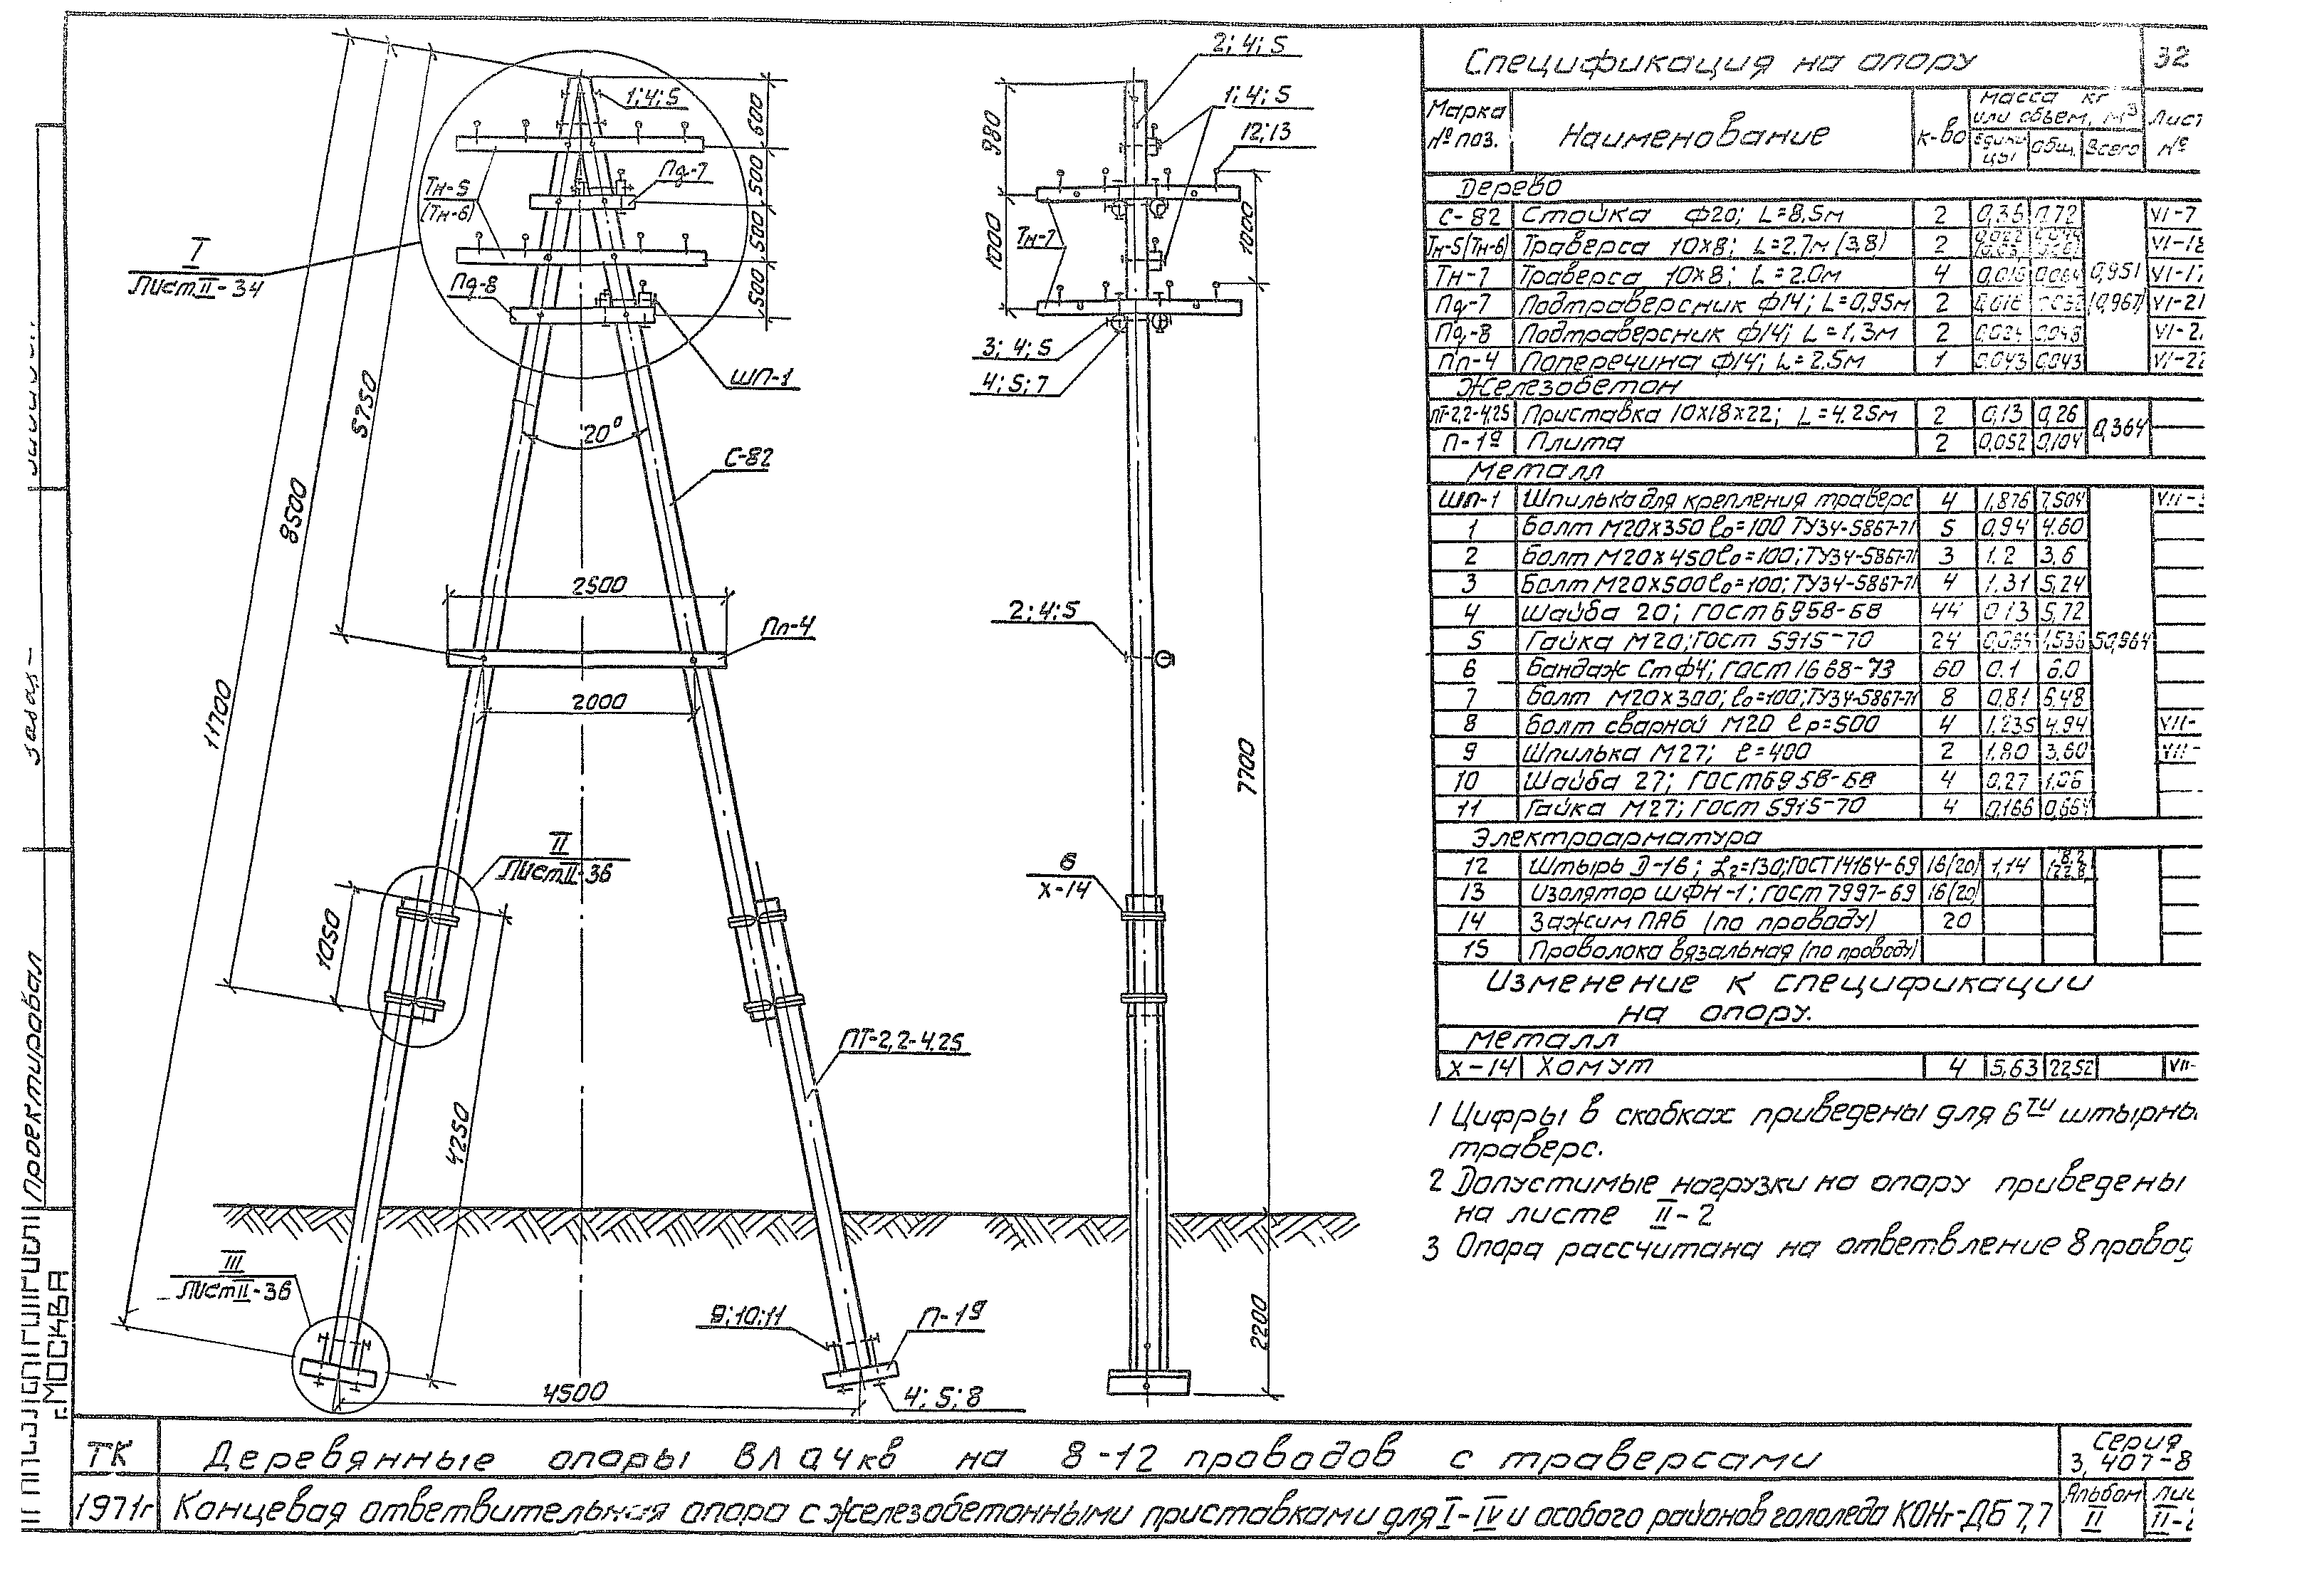 Спецификация на опору 32
Марка № поз. Наименование к-во Масса кг или объем, м3 единицы общ. Всего Лист №
Дерево
С-82 Стойка ф20; L=8,5м 2 0,36 0,72 VI-7
Тн-5(Тн-6) Траверса 10х8; L=2,7м (3,8) 2
Тн-7 Траверса 10х8; L=2.0м 4 0,016 0,064 0,951
Пд-7 Подтраверсник ф14; L=0,95м 2 0,016 (0,967)
Пд-8 Подтраверсник ф14; L=1,3м 2 0,024 0,048
Пп-4 Поперечина ф14; L=2.5м 1 0,043 0,043 VI-22
Железобетон
ПТ-2,2-4.25 Приставка 10х18х22; L=4.25м 2 0,13 0,26 0,364
П-1д Плита 2 0,052 0,104
Металл
ШП-1 Шпилька для крепления траверс 4 1,876 7,504
1 Болт М20х350 ℓ0=100 ТУ34-5867-71 5 0,94 4.60
2 Болт М20х450 ℓ0=100; ТУ34-5867-71 3 1.2 3,6
3 Болт М20х500 ℓ0=100; ТУ34-5867-71 4 1,31 5,24
4 Шайба 20; ГОСТ 6958-68 44 0,13 5,72
5 Гайка М20; ГОСТ 5915-70 24 0,064 1,536 50,964
6 Бандаж Ст ф4; ГОСТ 1668-73 60 0.1 6.0
7 Болт М20х300; ℓ0=100; ТУ34-5867-71 8 0,81 6,48
8 Болт сварной М20 ℓр=500 4 1,235 4.94 VII-
9 Шпилька М27; ℓ=400 2 1,80 3,60 VII-
10 Шайба 27; ГОСТ 6958-68 4 0,27 1,08
11 Гайка М27; ГОСТ 5915-70 4 0,166 0,664
Электроарматура
12 Штырь D-16; L2=130; ГОСТ 14164-69 16(20) 1,14
13 Изолятор ШФН-1; ГОСТ 7997-69 16(20)
14 Зажим ПАБ (по проводу) 20
15 Проволока вязальная (по проводу)
Изменение к спецификации
на опору.
Металл
Х-14 Хомут 4 5,63 22,52 VII-
1 Цифры в скобках приведены для 6ти штырны
траверс.
2 Допустимые нагрузки на опору приведены
на листе II-2
3 Опора рассчитана на ответвление 8 провод
1; 4; 5
600
500
500
500
Пд-7
Тн-5
(Тн-6)
Пд-8
I
Лист II-34
ШП-1
20°
С-82
5750
8500
11700
2500
Пп-4
2000
II
Лист II-36
1050
ПТ-2,2-4.25
4250
III
Лист II-36
9; 10; 11
П-1д
4; 5; 8
4500
2; 4; 5
1; 4; 5
12; 13
980
1000
Тн-7
1000
3; 4; 5
4; 5; 7
2; 4; 5
7700
6
Х-14
2200
Проектировал
г. МОСКВА
ТК Деревянные опоры ВЛ 0,4кв на 8-12 проводов с траверсами Серия 3,407-8
1971г Концевая ответвительная опора с железобетонными приставками для I-IV и особого районов гололеда КОНг-ДБ 7,7 Альбом II